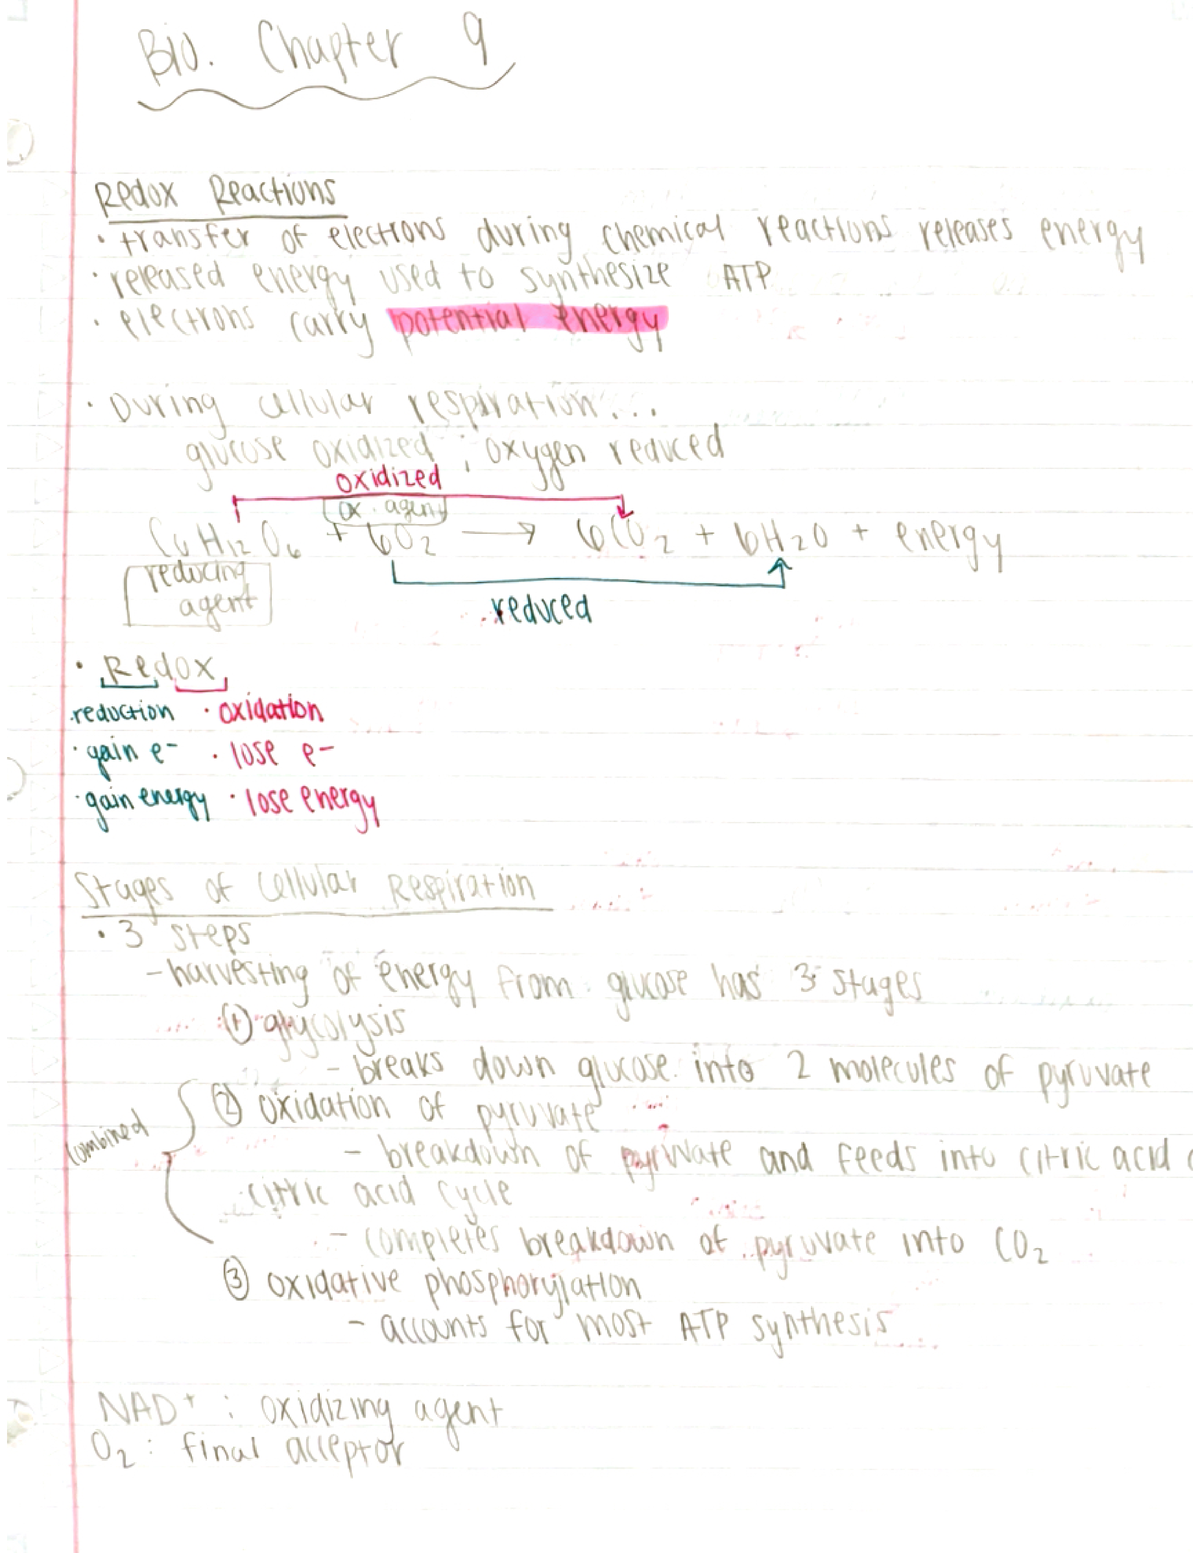 Bio. Chapter 9
Redox Reactions
· transfer of electrons during chemical reactions releases energy
· released energy used to synthesize ATP
· electrons carry potential energy
· During cellular respiration...
glucose oxidized ; oxygen reduced
oxidized
ox. agent
C6H12O6 + 6O2 → 6CO2 + 6H2O + energy
reducing
agent
reduced
· Redox
·reduction · oxidation
· gain e- · lose e-
· gain energy · lose energy
Stages of Cellular Respiration
· 3 steps
- harvesting of energy from glucose has 3 stages
① glycolysis
- breaks down glucose into 2 molecules of pyruvate
② oxidation of pyruvate
combined
- breakdown of pyruvate and feeds into citric acid
citric acid cycle
- completes breakdown of pyruvate into CO2
③ oxidative phosphorylation
- accounts for most ATP synthesis
NAD+ : oxidizing agent
O2 : final acceptor